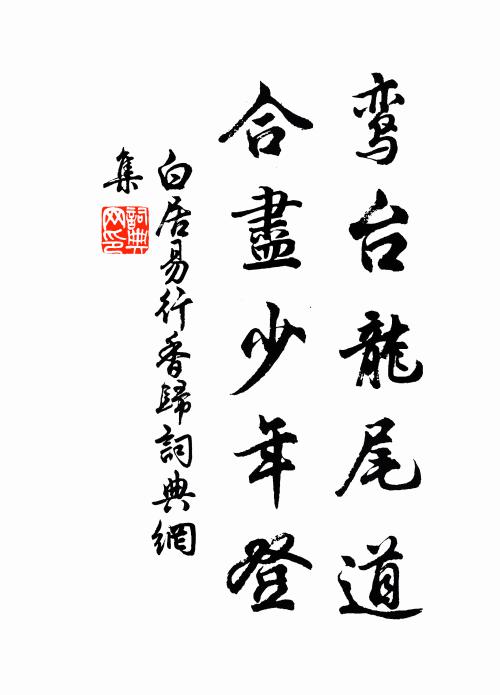 鸾台龍尾道
合盡少年登
白居易行香歸詞典網
集
詞典
网印